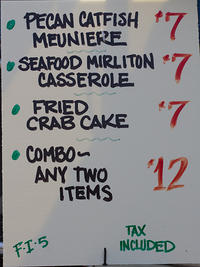 PECAN CATFISH $7
MEUNIERE
SEAFOOD MIRLITON $7
CASSEROLE
FRIED $7
CRAB CAKE
COMBO~ $12
ANY TWO
ITEMS
F-I-5
TAX
INCLUDED